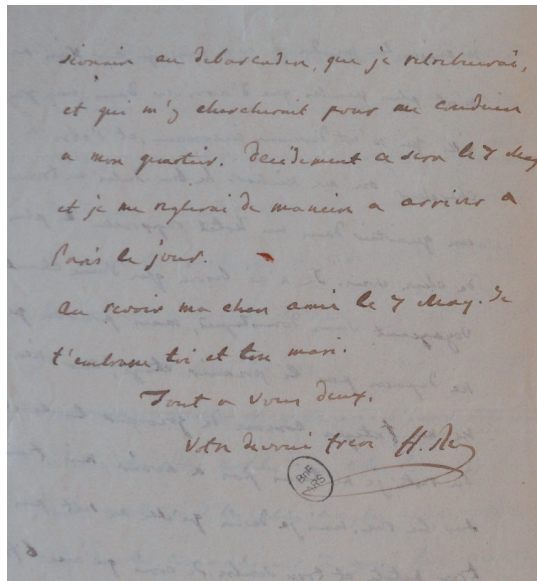 sionnaire au debarcader, que je retribuerai,
et qui m'y chercherait pour me conduire
a mon quartier. Decidement ce sera le 7 May
et je me reglerai de maniere a arriver a
Paris le jour.
Au revoir ma chere amie le 7 May. Je
t'embrasse toi et ton mari.
Tout a vous deux.
votre devoué frere H.
BnF
ARS